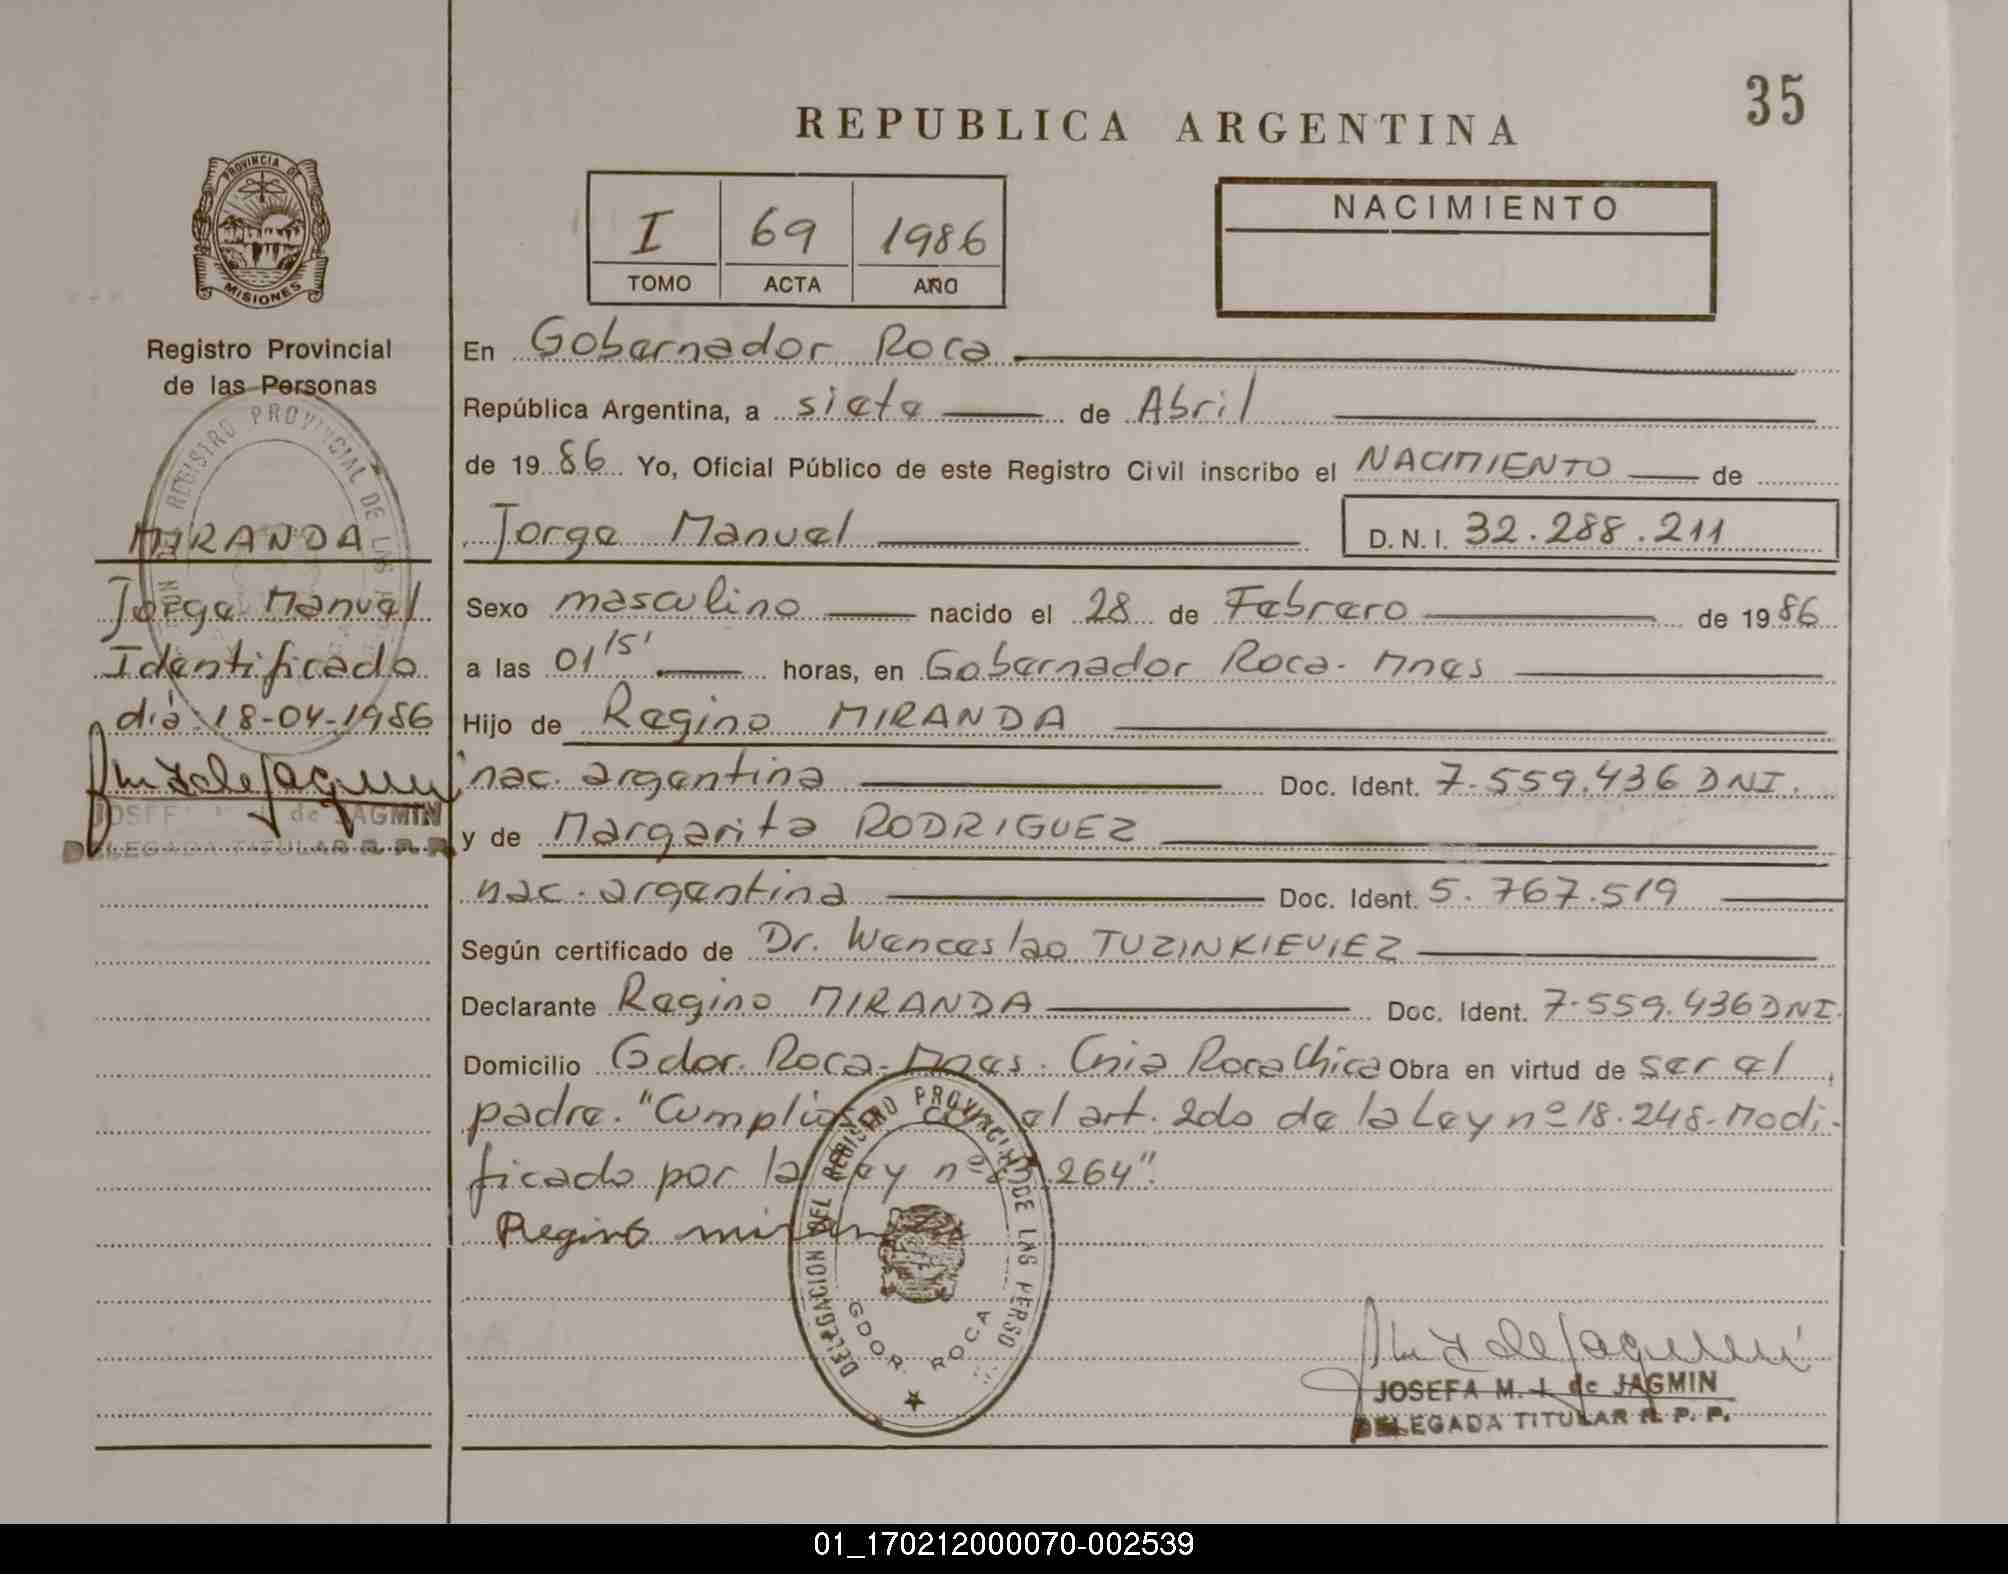 35
REPUBLICA ARGENTINA
PROVINCIA DE
MISIONES
Registro Provincial
de las Personas
I 69 1986
TOMO ACTA AÑO
NACIMIENTO
REGISTRO PROVINCIAL DE LAS
MIRANDA
Jorge Manuel
Identificado
día 18-04-1986
JOSEFA de JAGMIN
DELEGADA TITULAR R. P. P.
En Gobernador Roca
República Argentina, a siete de Abril
de 1986 Yo, Oficial Público de este Registro Civil inscribo el NACIMIENTO de
Jorge Manuel D.N.I. 32.288.211
Sexo masculino nacido el 28 de Febrero de 1986
a las 01 15' horas, en Gobernador Roca - Mnes
Hijo de Regino MIRANDA
nac. argentina Doc. Ident. 7.559.436 DNI.
y de Margarita RODRIGUEZ
nac. argentina Doc. Ident. 5.767.519
Según certificado de Dr. Wenceslao TUZINKIEVIEZ
Declarante Regino MIRANDA Doc. Ident. 7.559.436 DNI.
Domicilio Gdor. Roca - Mnes. Cnia Roca Chica Obra en virtud de ser el
padre. "Cumplióse con el art. 2do de la Ley nº 18.248. Modi-
ficado por la Ley nº 23.264".
Regino miran
DELEGACION DEL REGISTRO PROVINCIAL DE LAS PERSO
GDOR. ROCA
JOSEFA M. J. de JAGMIN
DELEGADA TITULAR R. P. P.
01_170212000070-002539